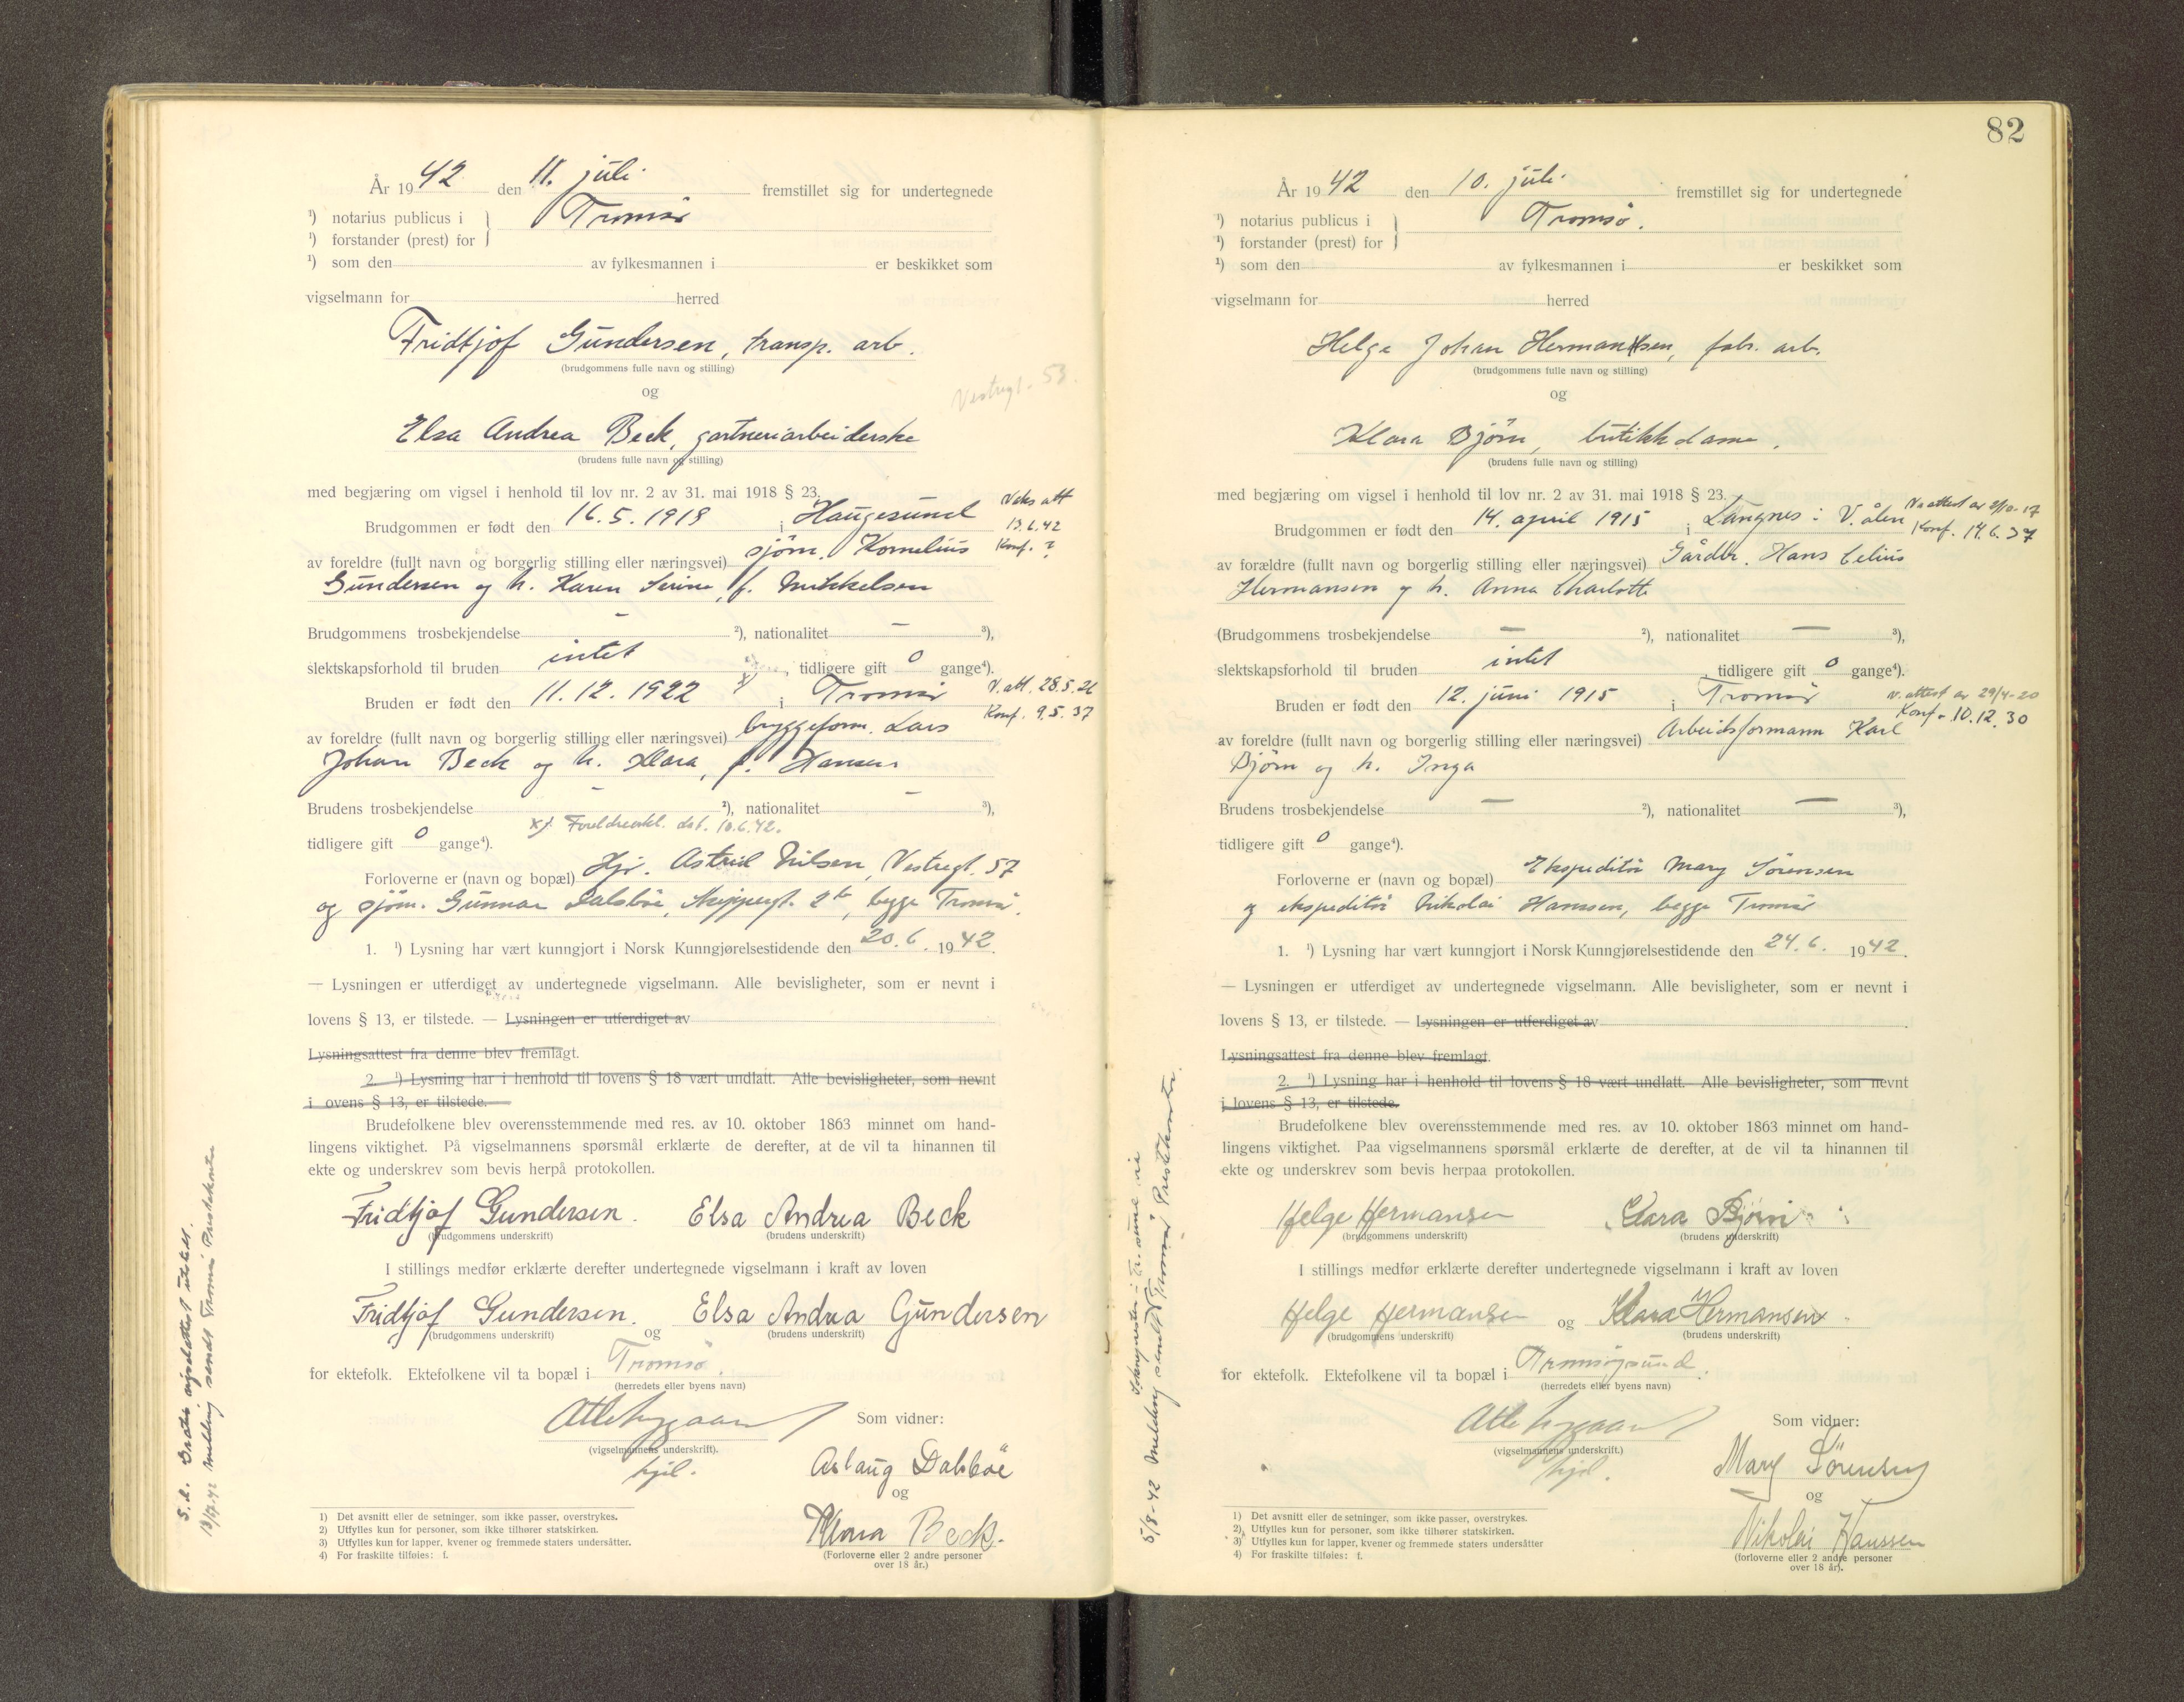 År 1942 den 11. juli fremstillet sig for undertegnede
¹) notarius publicus i } Tromsø
¹) forstander (prest) for
¹) som den av fylkesmannen i er beskikket som
vigselmann for herred
Fridtjof Gundersen, transp. arb.
(brudgommens fulle navn og stilling)
Vestregt. 53.
og
Elsa Andrea Beck, gartneriarbeiderske
(brudens fulle navn og stilling)
med begjæring om vigsel i henhold til lov nr. 2 av 31. mai 1918 § 23.
Brudgommen er født den 16.5.1918 i Haugesund
Vaks att
13.6.42
Konf. ?
av foreldre (fullt navn og borgerlig stilling eller næringsvei) sjøm. Kornelius
Gundersen og h. Karen Serine, f. Mikkelsen
Brudgommens trosbekjendelse – ²), nationalitet – ³),
slektskapsforhold til bruden intet x) , tidligere gift 0 gange⁴).
Bruden er født den 11.12.1922 i Tromsø
V. att. 28.5.26
Konf. 9.5.37
av foreldre (fullt navn og borgerlig stilling eller næringsvei) bryggeform. Lars
Johan Beck og h. Klara, f. Hansen
Brudens trosbekjendelse – ²), nationalitet – ³),
x) Foreldreerkl. dat. 10.6.42.
tidligere gift 0 gange⁴).
Forloverne er (navn og bopæl) Hjr. Astrid Nilsen, Vestregt. 57
og sjøm. Gunnar Dalsbøe, Skippergt. 2b, begge Tromsø.
1. ¹) Lysning har vært kunngjort i Norsk Kunngjørelsestidende den 20.6. 1942.
— Lysningen er utferdiget av undertegnede vigselmann. Alle bevisligheter, som er nevnt i
lovens § 13, er tilstede. — Lysningen er utferdiget av
Lysningsattest fra denne blev fremlagt.
2. ¹) Lysning har i henhold til lovens § 18 vært undlatt. Alle bevisligheter, som nevnt
i ovens § 13, er tilstede.
Brudefolkene blev overensstemmende med res. av 10. oktober 1863 minnet om hand-
lingens viktighet. På vigselmannens spørsmål erklærte de derefter, at de vil ta hinannen til
ekte og underskrev som bevis herpå protokollen.
Fridtjof Gundersen. Elsa Andrea Beck
(brudgommens underskrift) (brudens underskrift)
I stillings medfør erklærte derefter undertegnede vigselmann i kraft av loven
Fridtjof Gundersen. og Elsa Andrea Gundersen
(brudgommens underskrift) (brudens underskrift)
for ektefolk. Ektefolkene vil ta bopæl i Tromsø.
(herredets eller byens navn)
(vigselmannens underskrift).
hjel.
Som vidner:
Aslaug Dalsbøe
og
Klara Beck.
(Forloverne eller 2 andre personer
over 18 år.)
1) Det avsnitt eller de setninger, som ikke passer, overstrykes.
2) Utfylles kun for personer, som ikke tilhører statskirken.
3) Utfylles kun for lapper, kvener og fremmede staters undersåtter.
4) For fraskilte tilføies: f.
S. d. Gratis vigselattest utstedt.
13/7.42 melding sendt Tromsø Prestekontor
82
År 1942 den 10. juli fremstillet sig for undertegnede
¹) notarius publicus i } Tromsø.
¹) forstander (prest) for
¹) som den av fylkesmannen i er beskikket som
vigselmann for herred
Helge Johan Hermansen, fabr. arb.
(brudgommens fulle navn og stilling)
og
Klara Bjørn, butikkdame.
(brudens fulle navn og stilling)
med begjæring om vigsel i henhold til lov nr. 2 av 31. mai 1918 § 23.
Brudgommen er født den 14. april 1915 i Langnes i V. ålen
V. attest av 2/10-17
Konf. 14.6.37
av forældre (fullt navn og borgerlig stilling eller næringsvei) Gårdbr. Hans Celius
Hermansen og h. Anna Charlotte
(Brudgommens trosbekjendelse – ²), nationalitet – ³),
slektskapsforhold til bruden intet tidligere gift 0 gange⁴).
Bruden er født den 12. juni 1915 i Tromsø
V. attest av 29/4-20
Konf. 10.12.30
av foreldre (fullt navn og borgerlig stilling eller næringsvei) Arbeidsformann Karl
Bjørn og h. Inga
Brudens trosbekjendelse – ²), nationalitet – ³),
tidligere gift 0 gange⁴).
Forloverne er (navn og bopæl) Ekspeditør Mary Sørensen
og ekspeditør Nikolai Hanssen, begge Tromsø
1. ¹) Lysning har vært kunngjort i Norsk Kunngjørelsestidende den 24.6. 1942.
— Lysningen er utferdiget av undertegnede vigselmann. Alle bevisligheter, som er nevnt i
lovens § 13, er tilstede. — Lysningen er utferdiget av
Lysningsattest fra denne blev fremlagt.
2. ¹) Lysning har i henhold til lovens § 18 vært undlatt. Alle bevisligheter, som nevnt
i lovens § 13, er tilstede.
Brudefolkene blev overensstemmende med res. av 10. oktober 1863 minnet om hand-
lingens viktighet. Paa vigselmannens spørsmål erklærte de derefter, at de vil ta hinannen til
ekte og underskrev som bevis herpaa protokollen.
Helge Hermansen Klara Bjørn
(brudgommens underskrift) (brudens underskrift)
I stillings medfør erklærte derefter undertegnede vigselmann i kraft av loven
Helge Hermansen og Klara Hermansen
(brudgommens underskrift) (brudens underskrift)
for ektefolk. Ektefolkene vil ta bopæl i Tromsøysund.
(herredets eller byens navn)
(vigselmannens underskrift.)
hjel.
Som vidner:
Mary Sørensen
og
Nikolai Hanssen
(forloverne eller 2 andre personer
over 18 år).
1) Det avsnitt eller de setninger, som ikke passer, overstrykes.
2) Utfylles kun for personer, som ikke tilhører statskirken.
3) Utfylles kun for lapper, kvener og fremmede staters undersåtter
4) For fraskilte tilføies: f.
5/8-42 Melding sendt Tromsø Prestekontor.